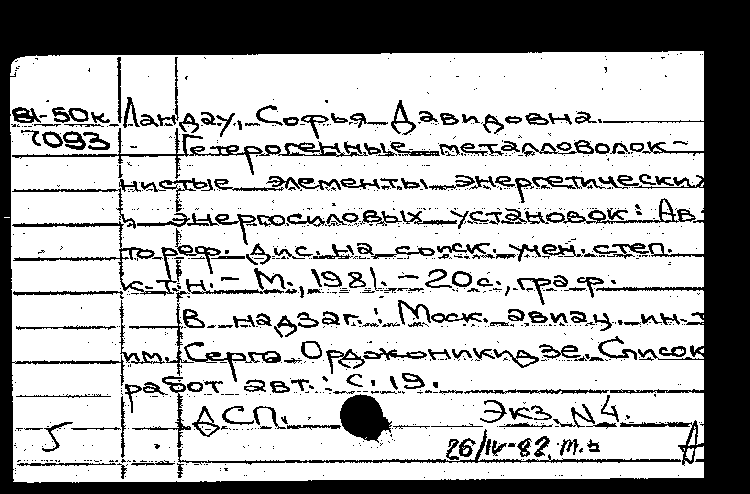 81-50к Ландау, Софья Давидовна.
7093 Гетерогенные металловолок-
нистые элементы энергетических
и энергосиловых установок: Ав-
тореф. дис. на соиск. учен. степ.
к.т.н. - М., 1981. - 20 с., граф.
В надзаг.: Моск. авиац. ин-т
им. Серго Орджоникидзе. Список
работ авт.: с. 19.
ДСП. Экз. N4.
5 26/IV-82. т.ь А